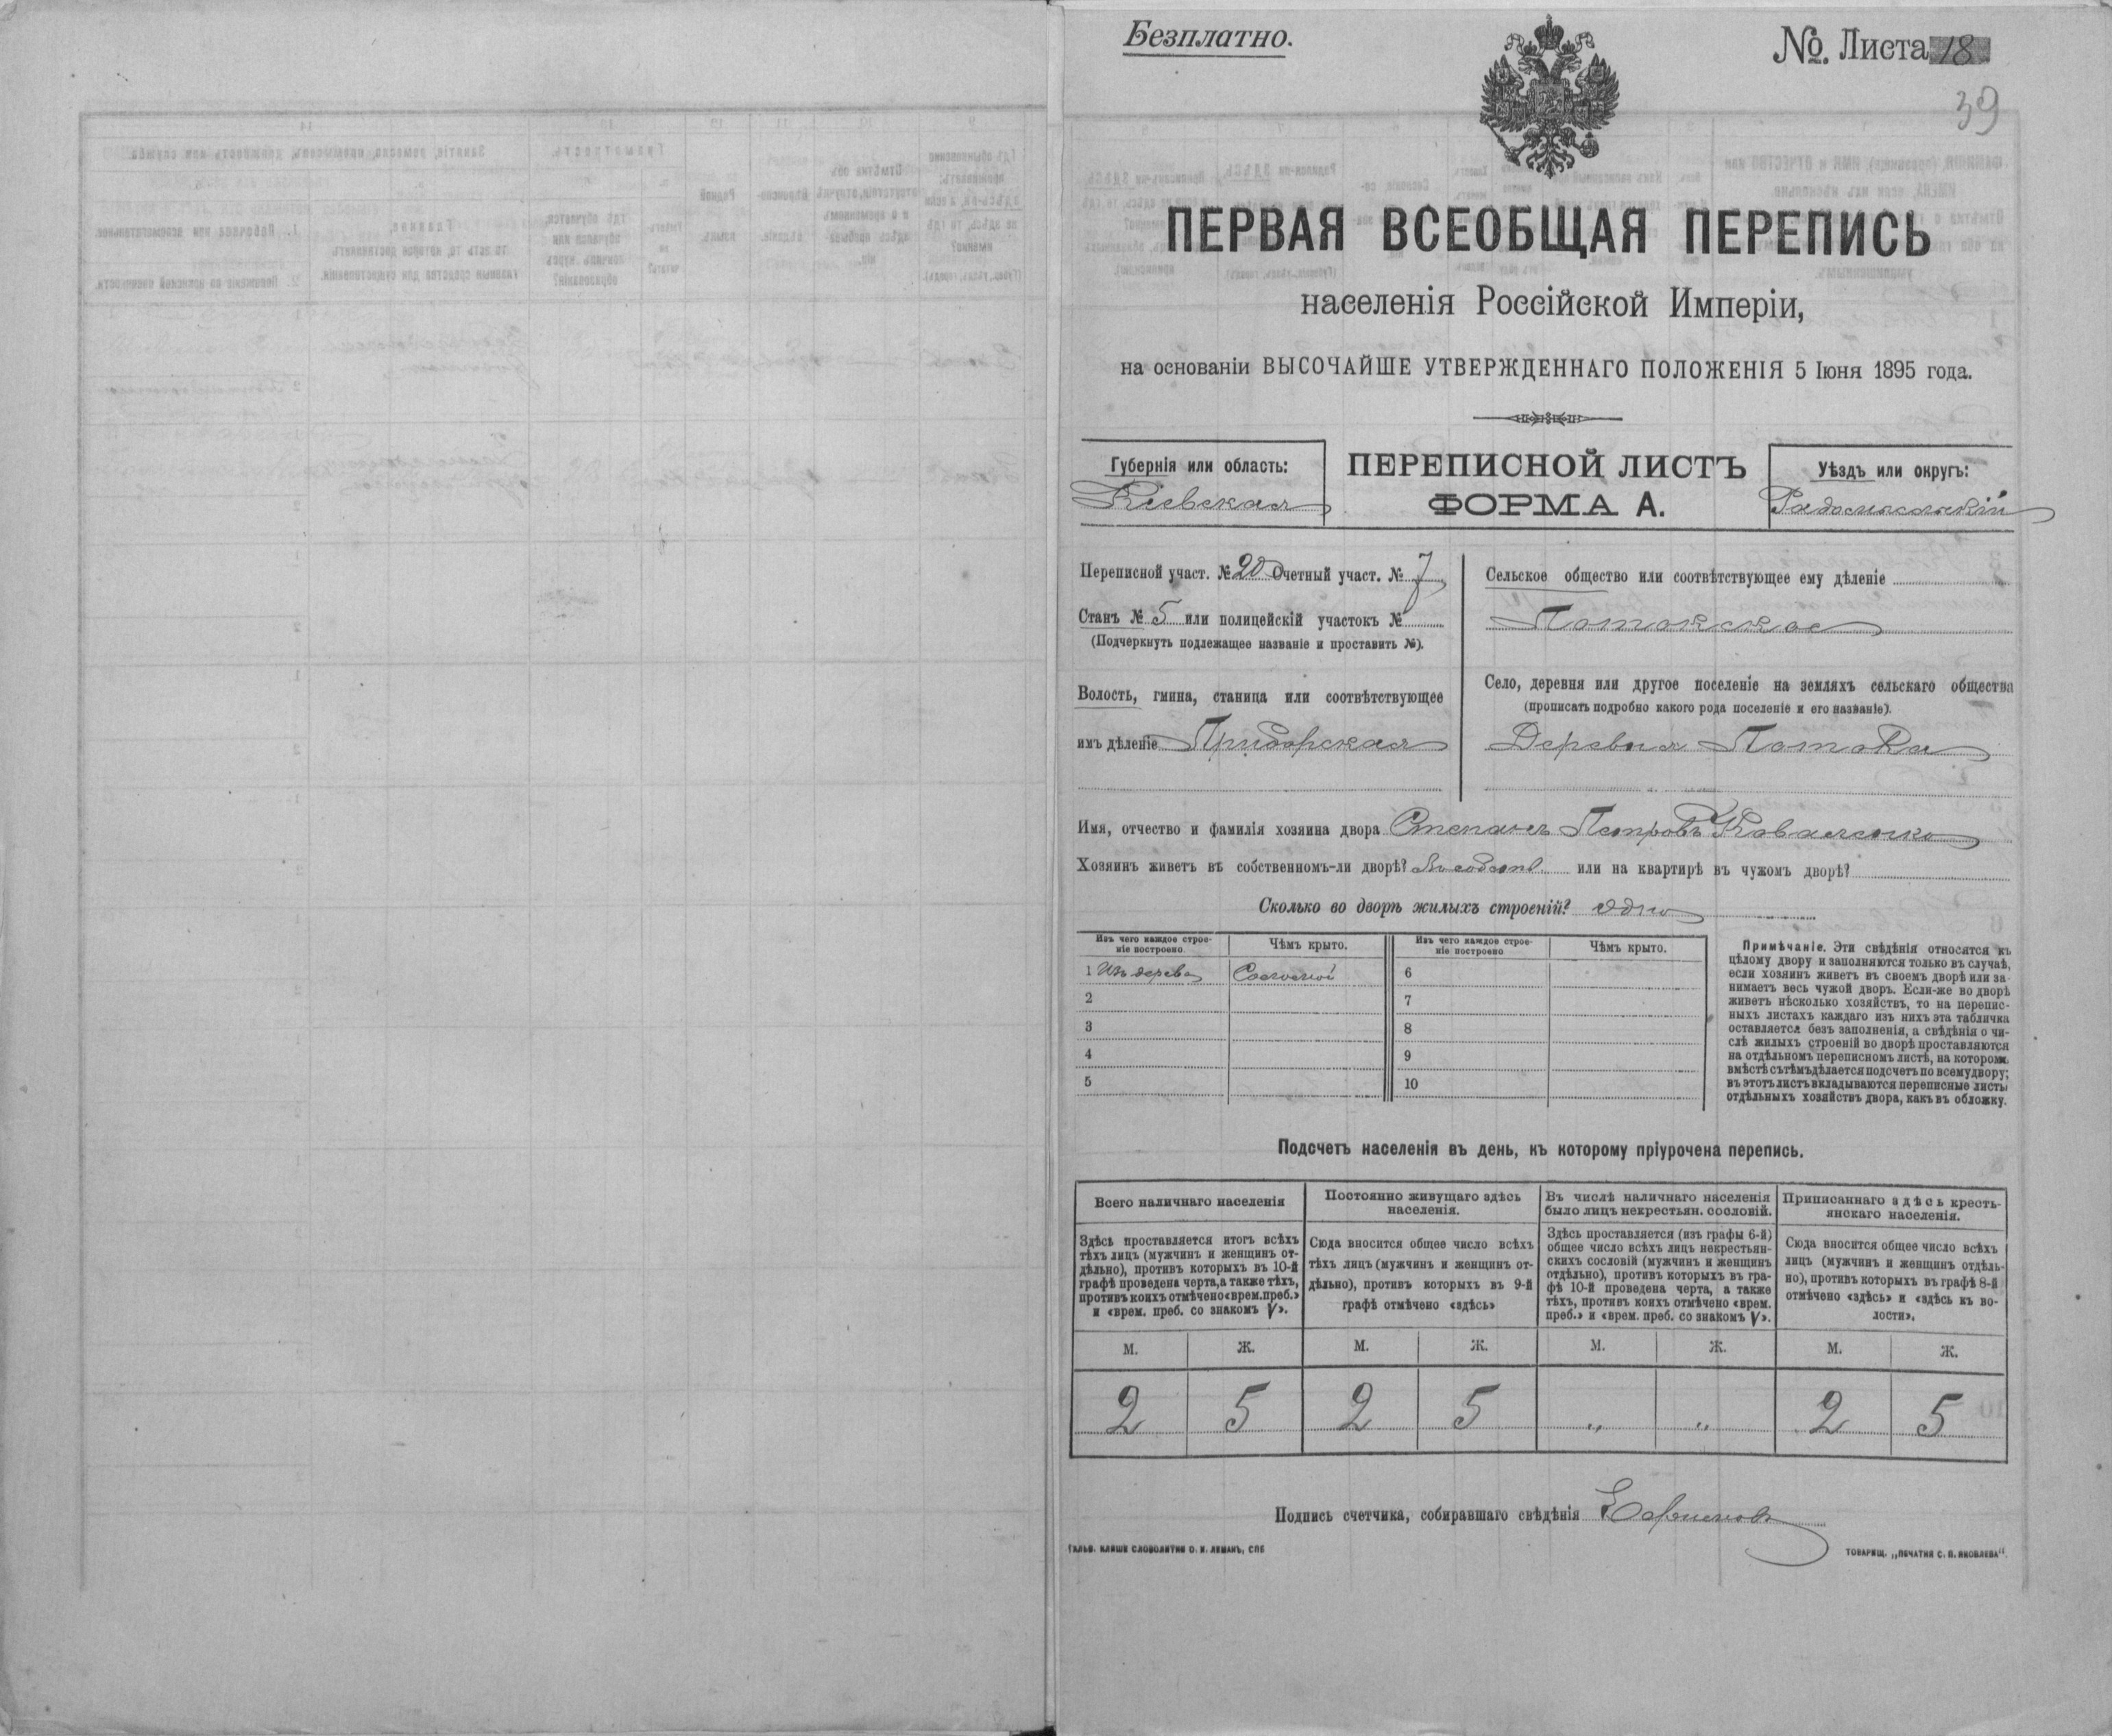 Безплатно.
№. Листа 18
39
ПЕРВАЯ ВСЕОБЩАЯ ПЕРЕПИСЬ
населенія Россійской Имперіи,
на основаніи ВЫСОЧАЙШЕ УТВЕРЖДЕННАГО ПОЛОЖЕНІЯ 5 Іюня 1895 года.
Губернія или область:
Кіевская
ПЕРЕПИСНОЙ ЛИСТЪ
ФОРМА А.
Уѣздъ или округъ:
Радомысльскій
Переписной участ. № 20 Счетный участ. № 7
Станъ № 5 или полицейскій участокъ №
(Подчеркнуть подлежащее названіе и проставить №).
Волость, гмина, станица или соотвѣтствующее
имъ дѣленіе Приборская
Сельское общество или соотвѣтствующее ему дѣленіе
Потокское
Село, деревня или другое поселеніе на земляхъ сельскаго общества
(прописать подробно какого рода поселеніе и его названіе).
Деревня Потоки
Имя, отчество и фамилія хозяина двора Степанъ Петровъ Коваленко
Хозяинъ живетъ въ собственномъ-ли дворѣ? Въ собств. или на квартирѣ въ чужомъ дворѣ?
Сколько во дворѣ жилыхъ строеній? одно
Изъ чего каждое строе-
ніе построено.
Чѣмъ крыто.
Изъ чего каждое строе-
ніе построено
Чѣмъ крыто.
1 Изъ дерева Соломой 6
2 7
3 8
4 9
5 10
Примѣчаніе. Эти свѣдѣнія относятся къ
цѣлому двору и заполняются только въ случаѣ,
если хозяинъ живетъ въ своемъ дворѣ или за-
нимаетъ весь чужой дворъ. Если-же во дворѣ
живетъ нѣсколько хозяйствъ, то на перепис-
ныхъ листахъ каждаго изъ нихъ эта табличка
оставляется безъ заполненія, а свѣдѣнія о чи-
слѣ жилыхъ строеній во дворѣ проставляются
на отдѣльномъ переписномъ листѣ, на которомъ,
вмѣстѣ съ тѣмъ дѣлается подсчетъ по всему двору;
въ этотъ листъ вкладываются переписные листы
отдѣльныхъ хозяйствъ двора, какъ въ обложку.
Подсчетъ населенія въ день, къ которому пріурочена перепись.
Всего наличнаго населенія
Здѣсь проставляется итогъ всѣхъ
тѣхъ лицъ (мужчинъ и женщинъ от-
дѣльно), противъ которыхъ въ 10-й
графѣ проведена черта, а также тѣхъ,
противъ коихъ отмѣчено «врем. преб.»
и «врем. преб. со знакомъ V».
Постоянно живущаго здѣсь
населенія.
Сюда вносится общее число всѣхъ
тѣхъ лицъ (мужчинъ и женщинъ от-
дѣльно), противъ которыхъ въ 9-й
графѣ отмѣчено «здѣсь»
Въ числѣ наличнаго населенія
было лицъ некрестьян. сословій.
Здѣсь проставляется (изъ графы 6-й)
общее число всѣхъ лицъ некрестьян-
скихъ сословій (мужчинъ и женщинъ
отдѣльно), противъ которыхъ въ гра-
фѣ 10-й проведена черта, а также
тѣхъ, противъ коихъ отмѣчено «врем.
преб.» и «врем. преб. со знакомъ V».
Приписаннаго здѣсь кресть-
янскаго населенія.
Сюда вносится общее число всѣхъ
лицъ (мужчинъ и женщинъ отдѣль-
но), противъ которыхъ въ графѣ 8-й
отмѣчено «здѣсь» и «здѣсь къ во-
лости».
М. Ж. М. Ж. М. Ж. М. Ж.
2 5 2 5 „ „ 2 5
Подпись счетчика, собиравшаго свѣдѣнія
ГАЛЬВ. КЛИШЕ СЛОВОЛИТНИ О. И. ЛЕМАНЪ, СПБ
ТОВАРИЩ. „ПЕЧАТНЯ С. П. ЯКОВЛЕВА“.